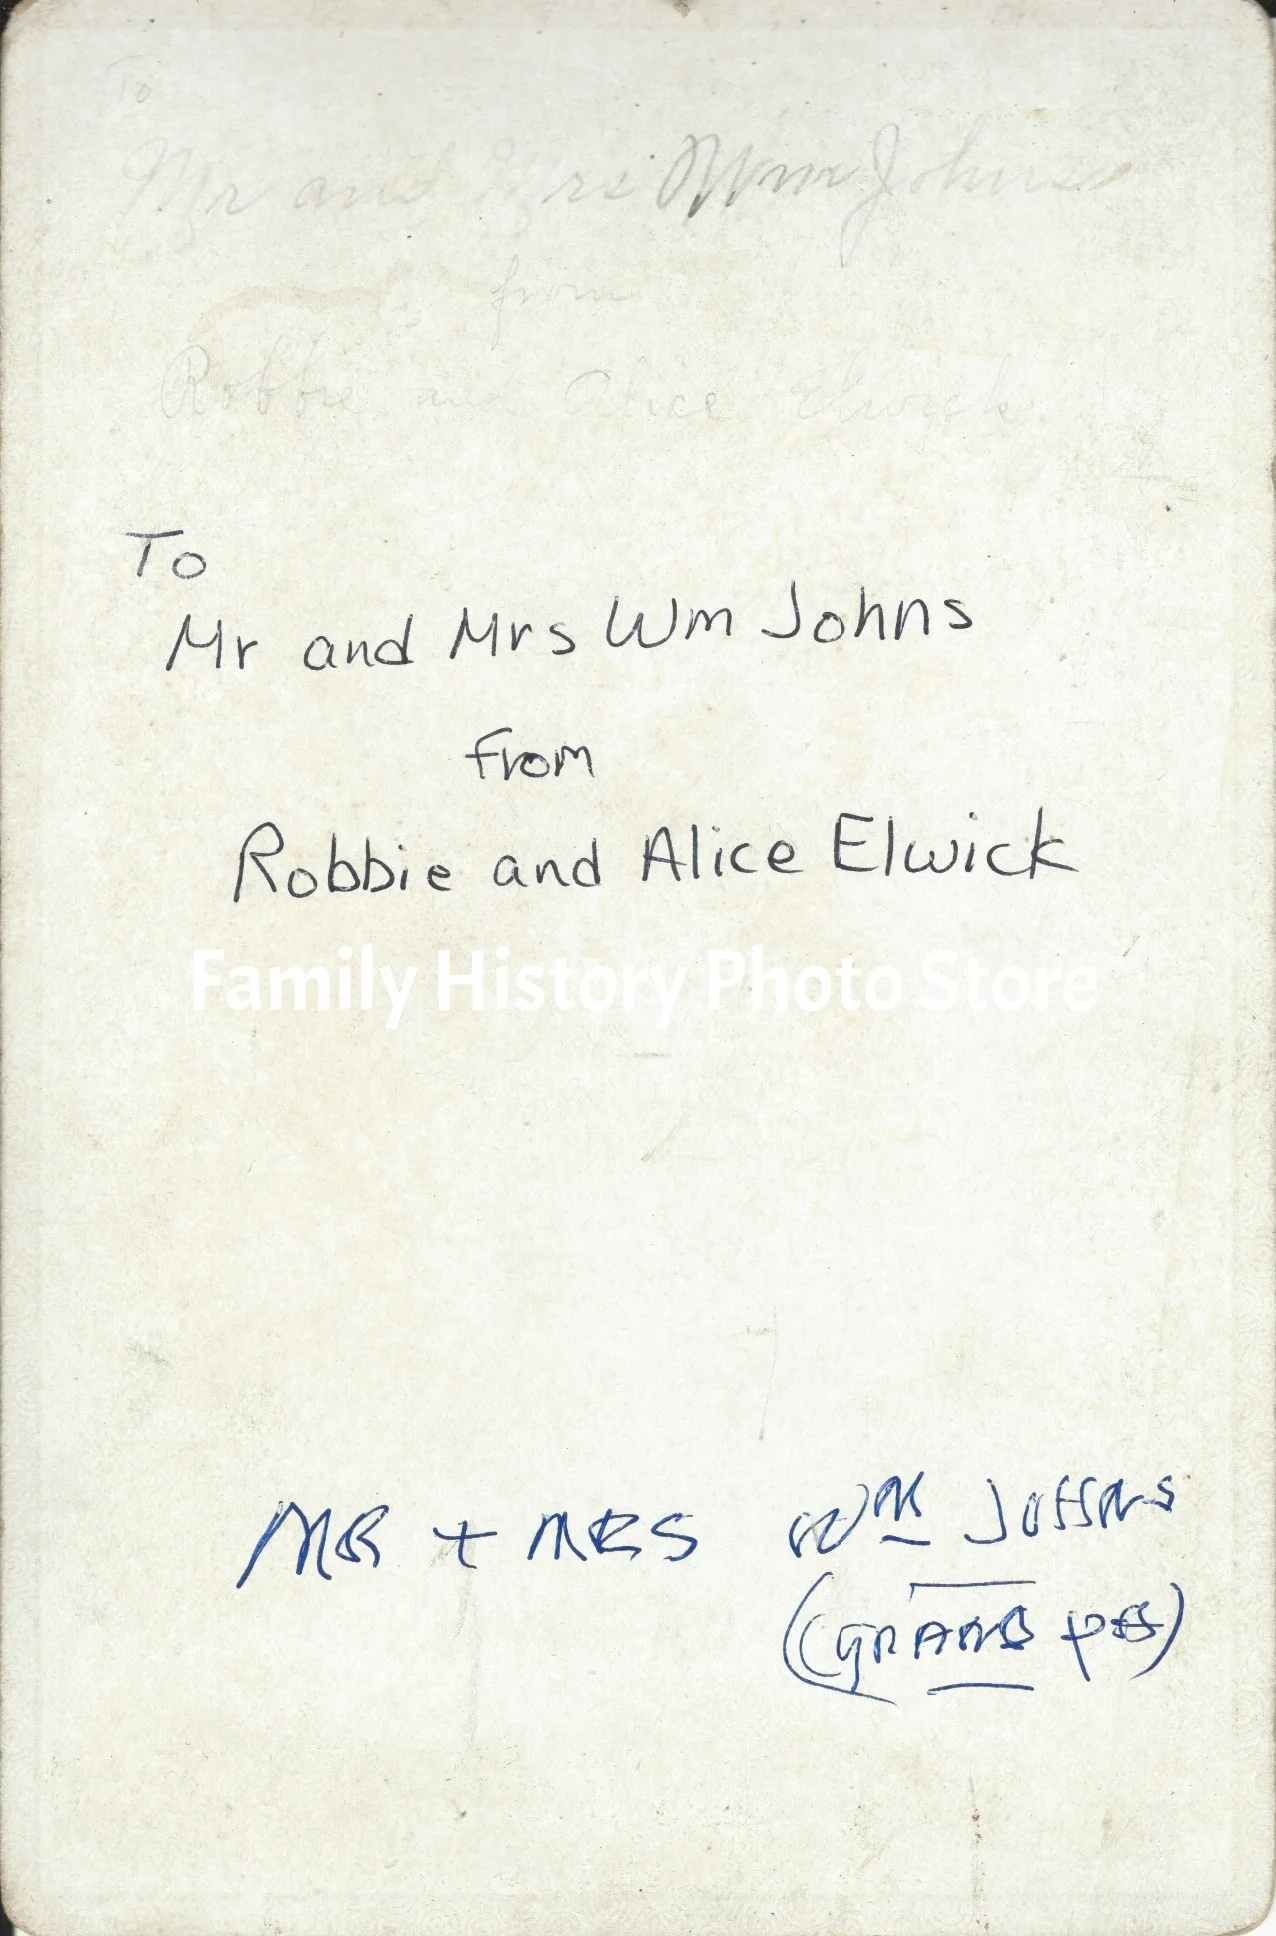 To
Mr and Mrs Wm Johns
from
Robbie and Alice Elwick
To
Mr and Mrs Wm Johns
from
Robbie and Alice Elwick
Family History Photo Store
MR + MRS WM JOHNS